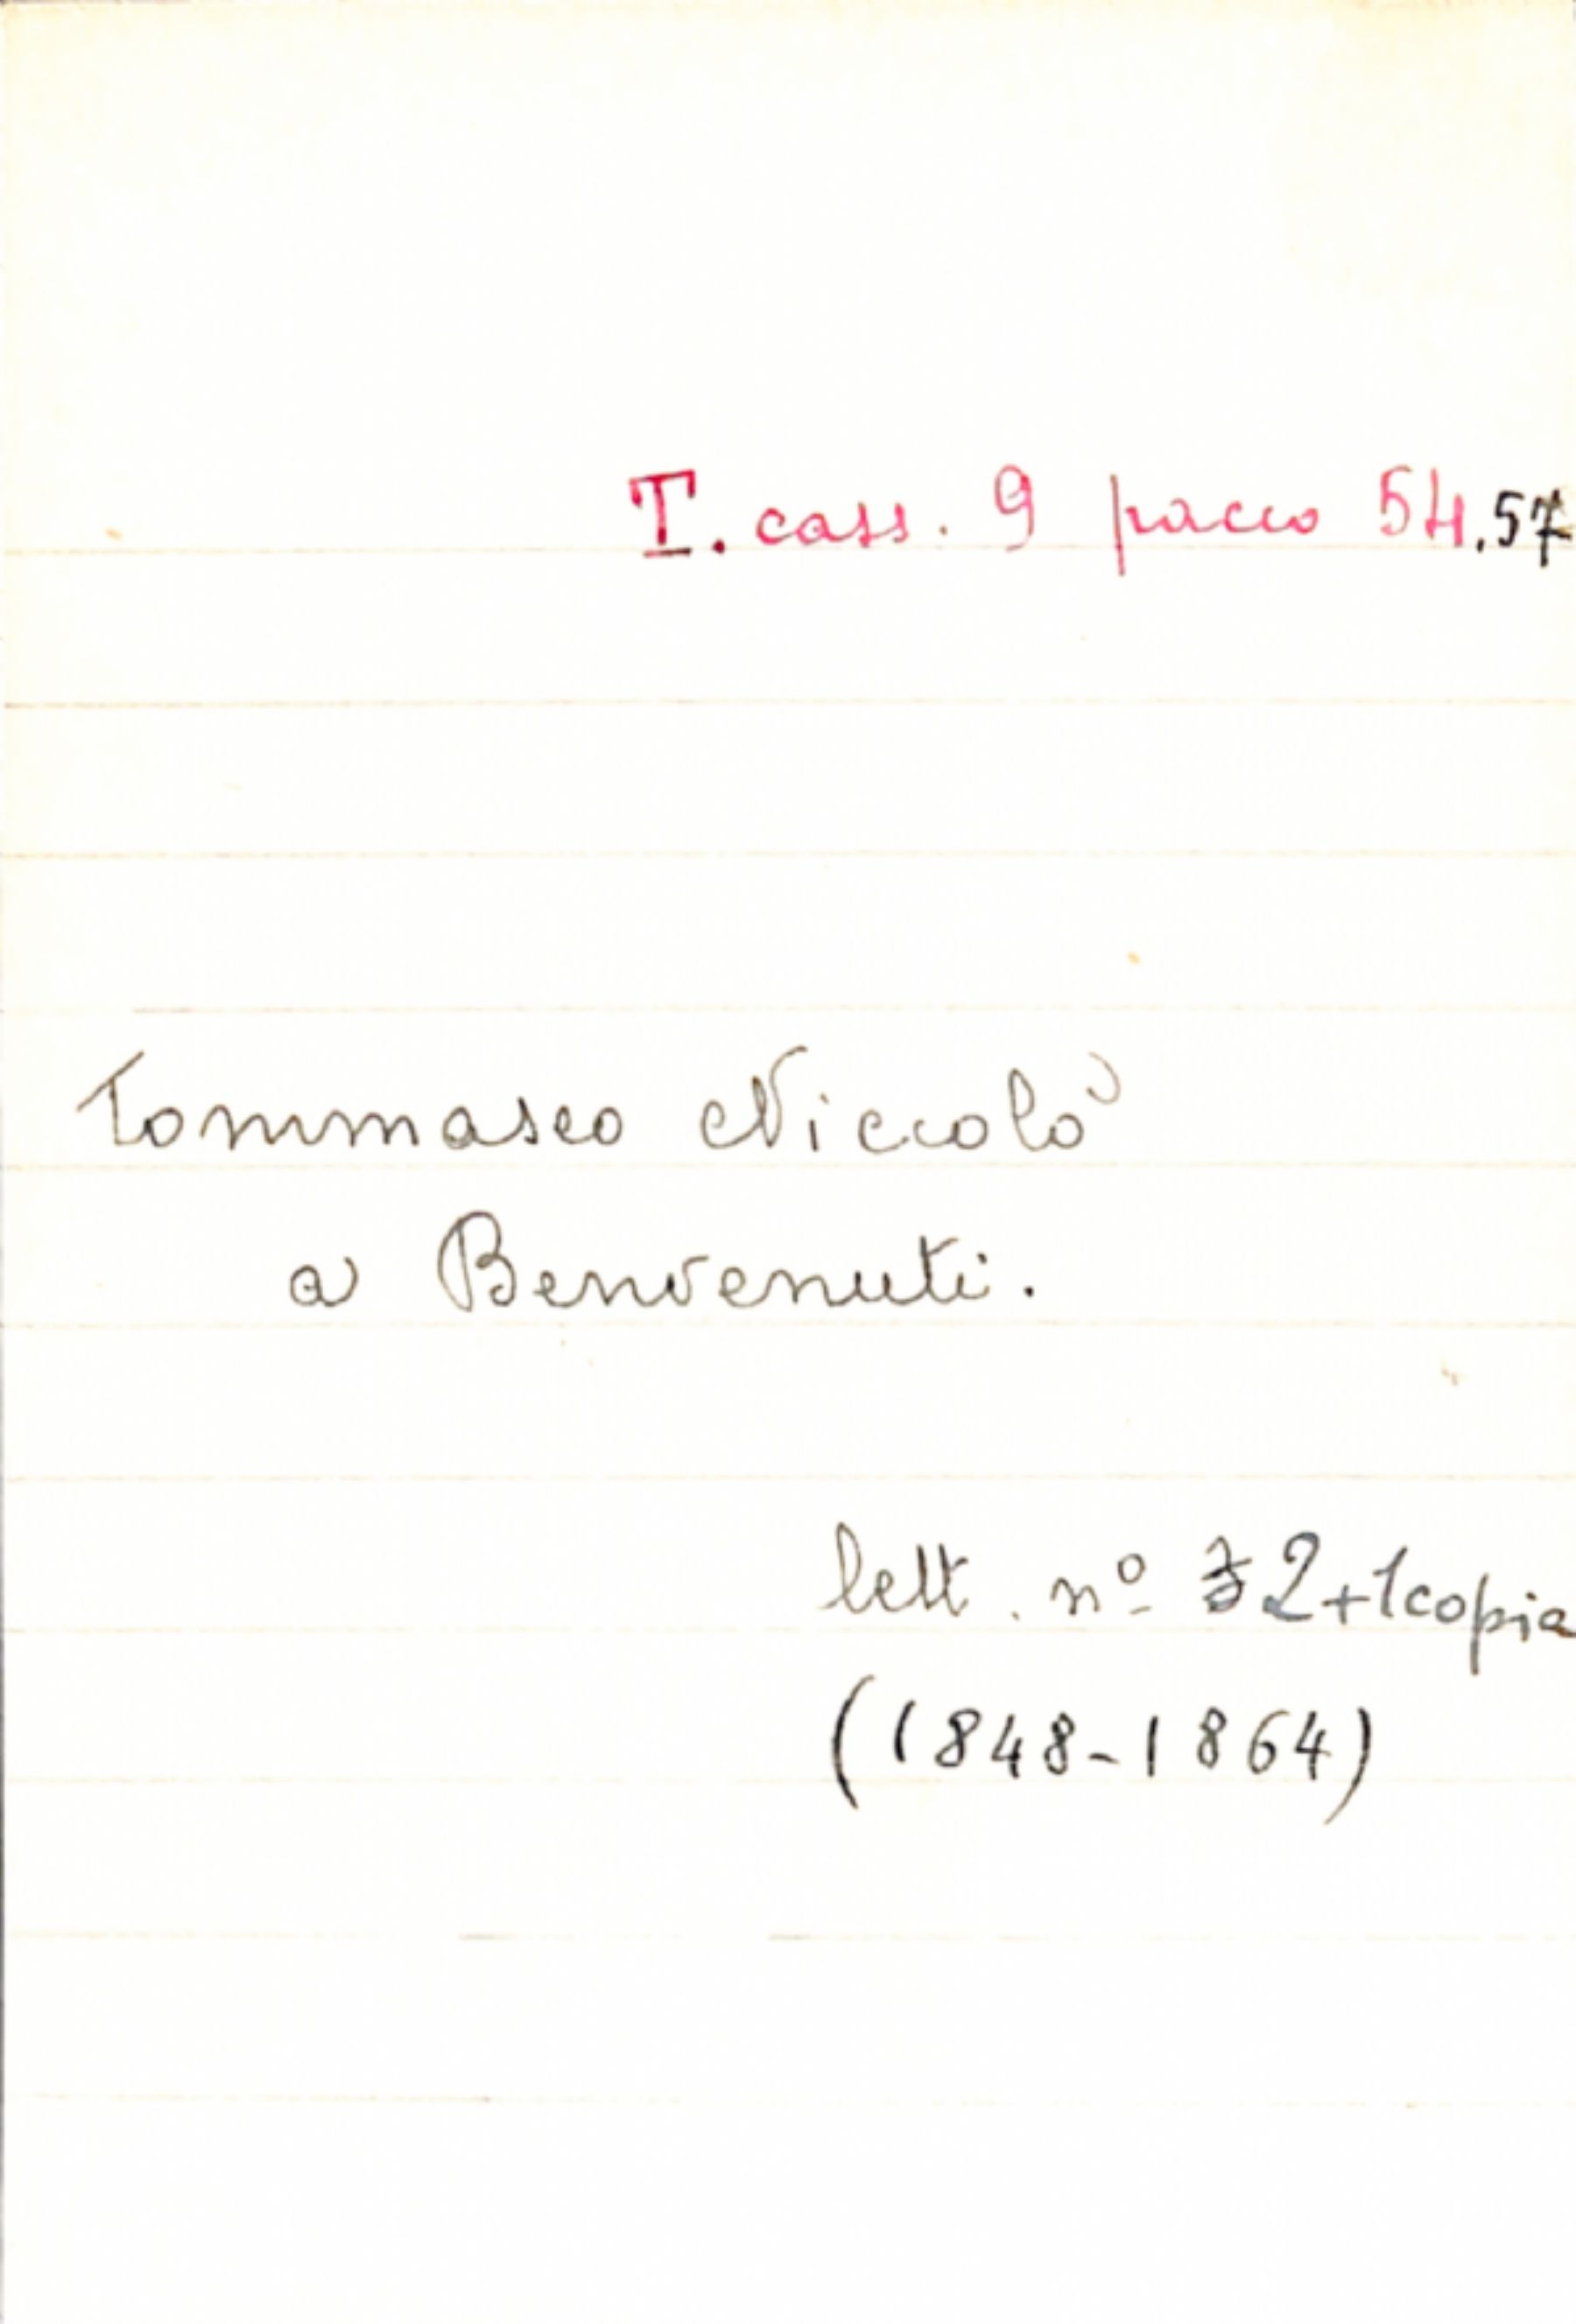 T. cass. 9 pacco 54.57
Tommaseo Niccolò
a Benvenuti.
lett. nº 2+1copia
(1848-1864)